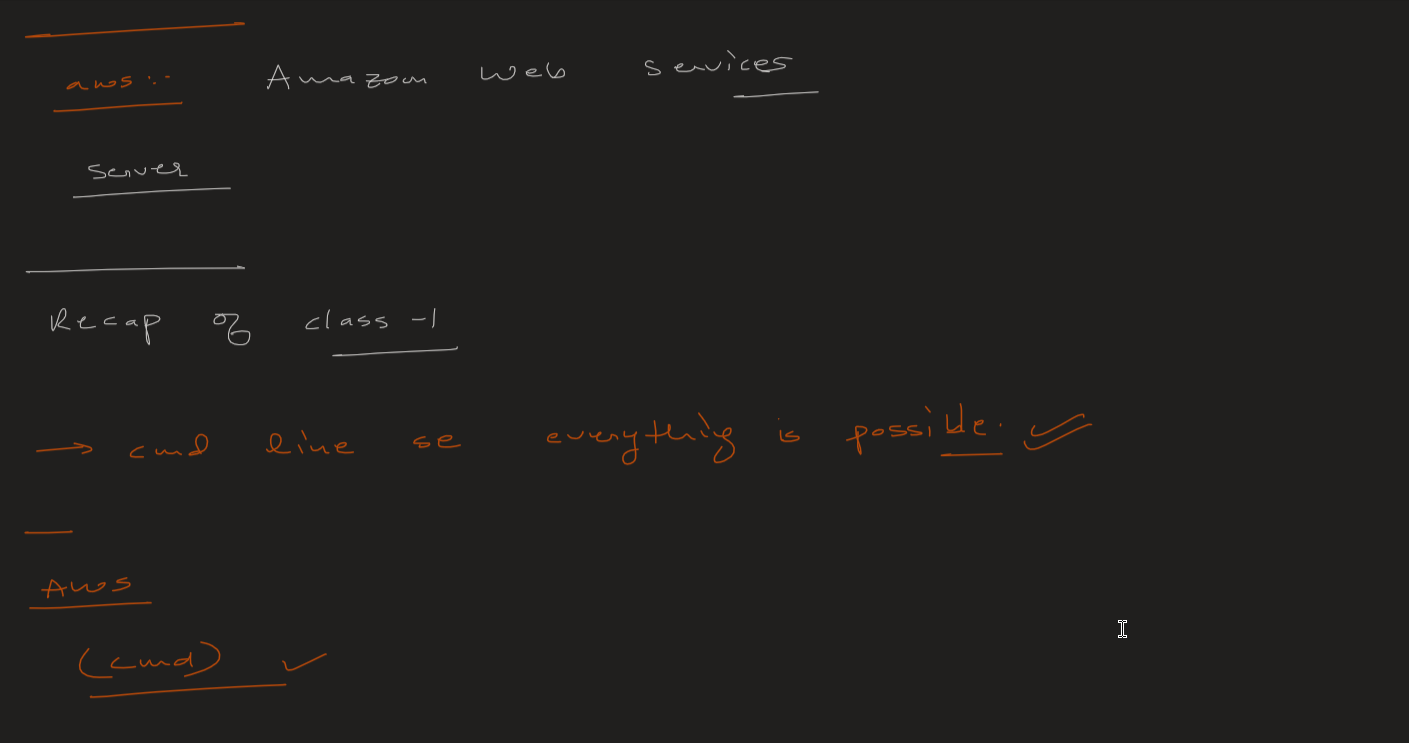 aws :- Amazon Web Services
Server
Recap of class -1
→ cmd line se everything is possible.
AWS
(cmd)